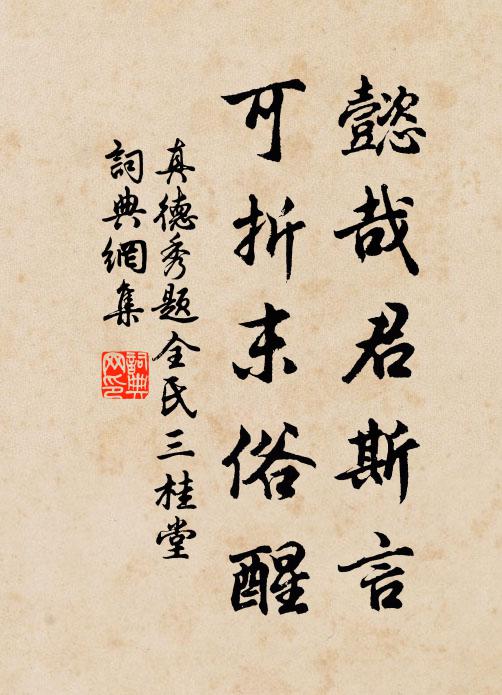 懿哉君斯言
可折末俗醒
真德秀题全氏三桂堂
詞典網集
詞典网印